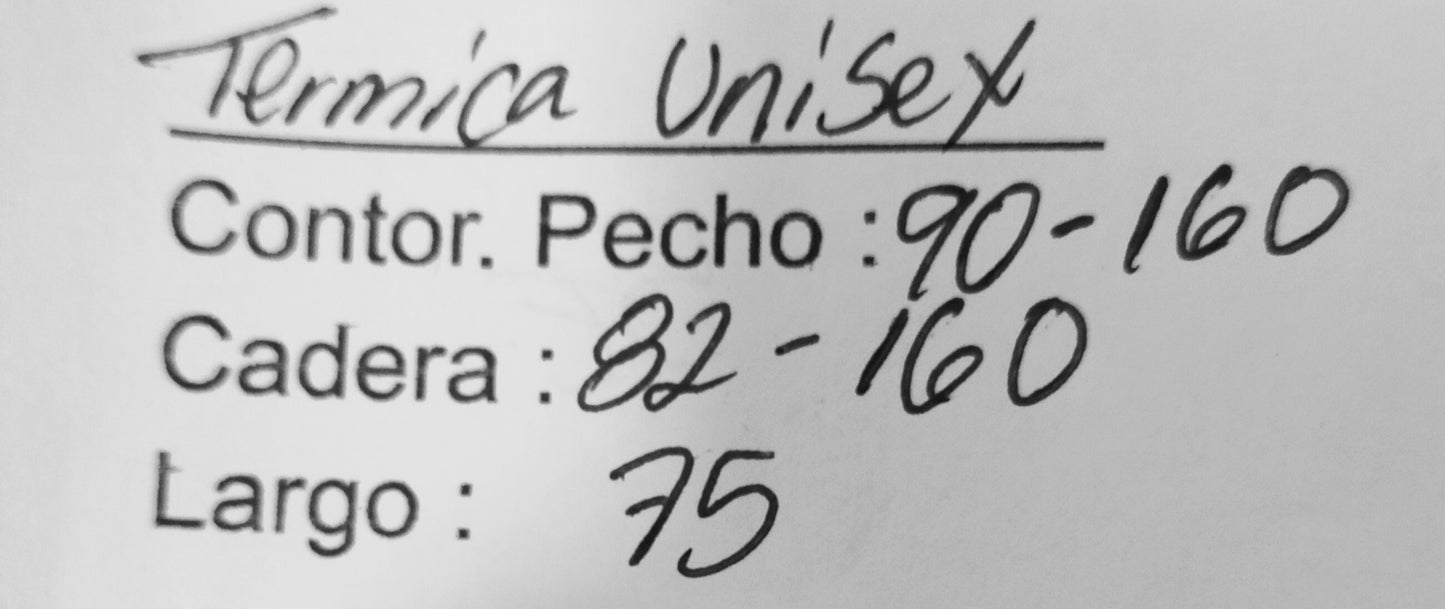 Termica Unisex
Contor. Pecho : 90-160
Cadera : 82-160
Largo : 75